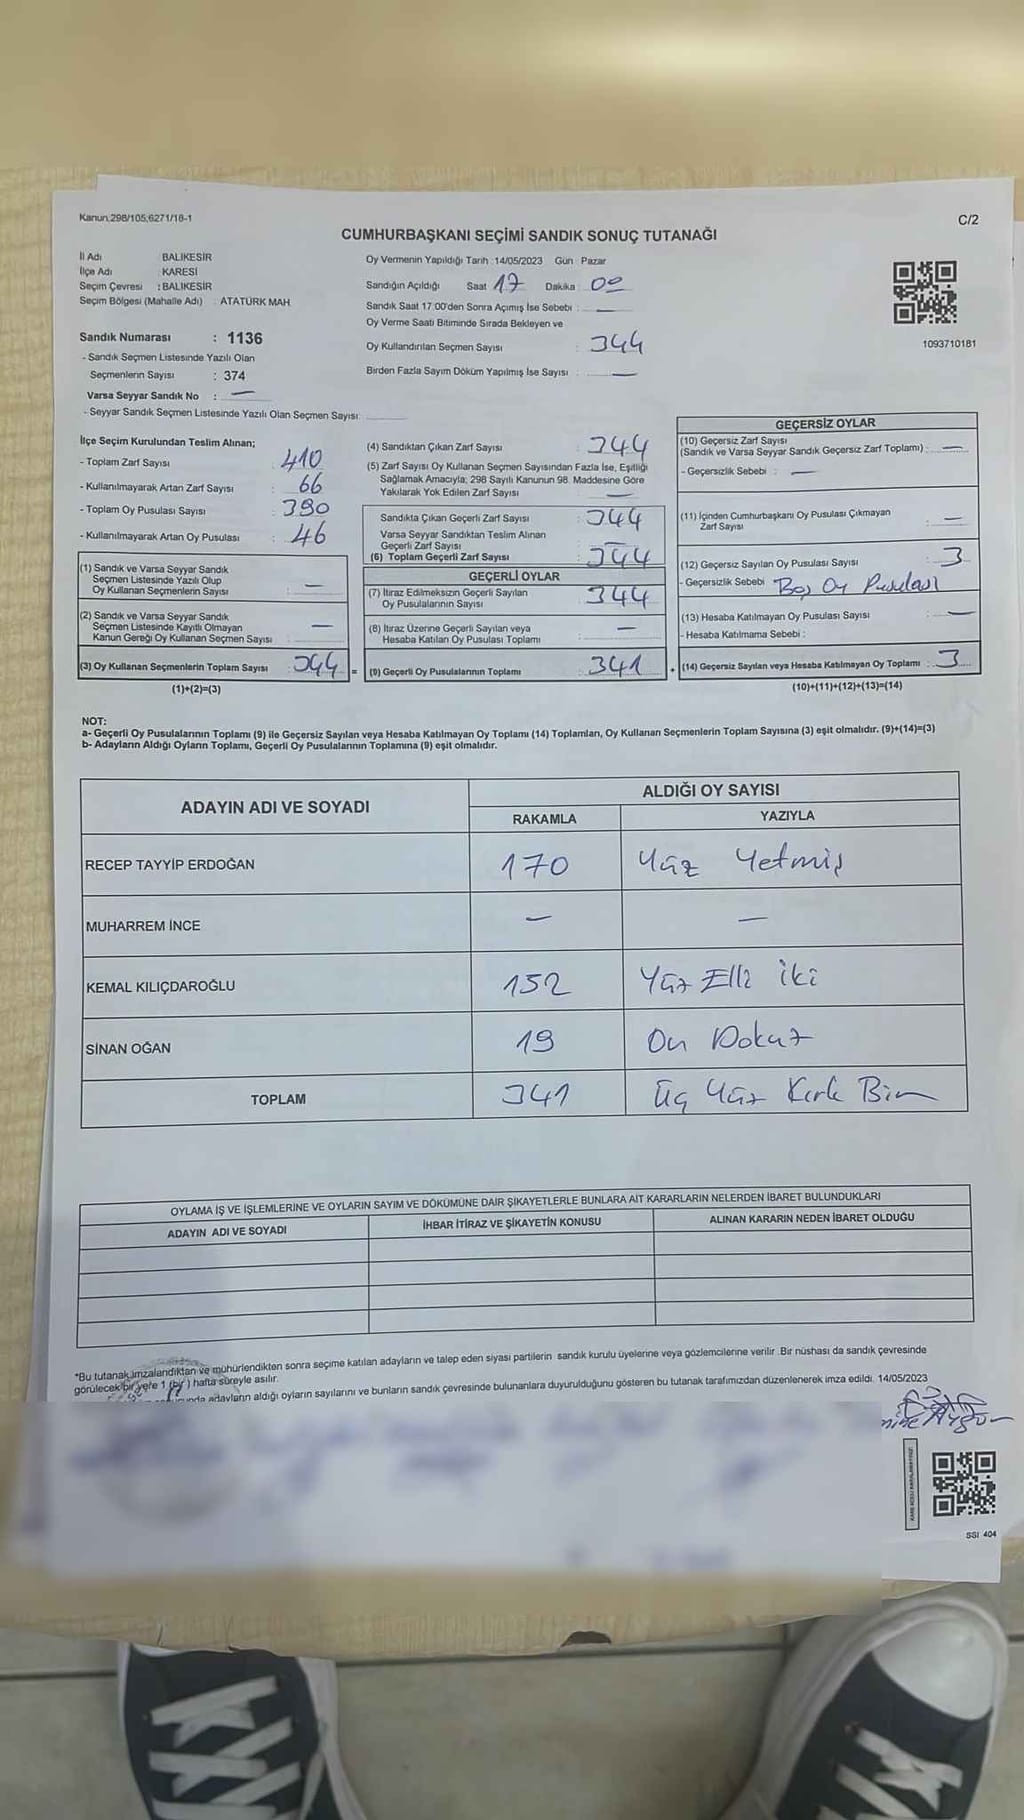 Kanun;298/105;6271/18-1
C/2
CUMHURBAŞKANI SEÇİMİ SANDIK SONUÇ TUTANAĞI
İl Adı : BALIKESİR
İlçe Adı : KARESİ
Seçim Çevresi : BALIKESİR
Seçim Bölgesi (Mahalle Adı) : ATATÜRK MAH.
Sandık Numarası : 1136
- Sandık Seçmen Listesinde Yazılı Olan
Seçmenlerin Sayısı : 374
Varsa Seyyar Sandık No : —
- Seyyar Sandık Seçmen Listesinde Yazılı Olan Seçmen Sayısı:
Oy Vermenin Yapıldığı Tarih :14/05/2023 Gün : Pazar
Sandığın Açıldığı Saat 17 Dakika : 00
Sandık Saat 17:00'den Sonra Açımış İse Sebebi : —
Oy Verme Saati Bitiminde Sırada Bekleyen ve
Oy Kullandırılan Seçmen Sayısı : 344
Birden Fazla Sayım Döküm Yapılmış İse Sayısı : —
1093710181
İlçe Seçim Kurulundan Teslim Alınan;
- Toplam Zarf Sayısı : 410
- Kullanılmayarak Artan Zarf Sayısı : 66
- Toplam Oy Pusulası Sayısı : 390
- Kullanılmayarak Artan Oy Pusulası : 46
(1) Sandık ve Varsa Seyyar Sandık
Seçmen Listesinde Yazılı Olup
Oy Kullanan Seçmenlerin Sayısı : —
(2) Sandık ve Varsa Seyyar Sandık
Seçmen Listesinde Kayıtlı Olmayan
Kanun Gereği Oy Kullanan Seçmen Sayısı : —
(3) Oy Kullanan Seçmenlerin Toplam Sayısı : 344
(1)+(2)=(3)
(4) Sandıktan Çıkan Zarf Sayısı : 344
(5) Zarf Sayısı Oy Kullanan Seçmen Sayısından Fazla İse, Eşitliği
Sağlamak Amacıyla; 298 Sayılı Kanunun 98. Maddesine Göre
Yakılarak Yok Edilen Zarf Sayısı : —
Sandıkta Çıkan Geçerli Zarf Sayısı : 344
Varsa Seyyar Sandıktan Teslim Alınan
Geçerli Zarf Sayısı : —
(6) Toplam Geçerli Zarf Sayısı : 344
GEÇERLİ OYLAR
(7) İtiraz Edilmeksizin Geçerli Sayılan
Oy Pusulalarının Sayısı : 344
(8) İtiraz Üzerine Geçerli Sayılan veya
Hesaba Katılan Oy Pusulası Toplamı : —
= (9) Geçerli Oy Pusulalarının Toplamı : 341
GEÇERSİZ OYLAR
(10) Geçersiz Zarf Sayısı
(Sandık ve Varsa Seyyar Sandık Geçersiz Zarf Toplamı) : —
- Geçersizlik Sebebi : —
(11) İçinden Cumhurbaşkanı Oy Pusulası Çıkmayan
Zarf Sayısı : —
(12) Geçersiz Sayılan Oy Pusulası Sayısı : 3
- Geçersizlik Sebebi : Boş Oy Pusulası
(13) Hesaba Katılmayan Oy Pusulası Sayısı : —
- Hesaba Katılmama Sebebi :
+ (14) Geçersiz Sayılan veya Hesaba Katılmayan Oy Toplamı : 3
(10)+(11)+(12)+(13)=(14)
NOT:
a- Geçerli Oy Pusulalarının Toplamı (9) ile Geçersiz Sayılan veya Hesaba Katılmayan Oy Toplamı (14) Toplamları, Oy Kullanan Seçmenlerin Toplam Sayısına (3) eşit olmalıdır. (9)+(14)=(3)
b- Adayların Aldığı Oyların Toplamı, Geçerli Oy Pusulalarının Toplamına (9) eşit olmalıdır.
ADAYIN ADI VE SOYADI
ALDIĞI OY SAYISI
RAKAMLA YAZIYLA
RECEP TAYYİP ERDOĞAN 170 Yüz Yetmiş
MUHARREM İNCE — —
KEMAL KILIÇDAROĞLU 152 Yüz Elli iki
SİNAN OĞAN 19 On Dokuz
TOPLAM 341 Üç Yüz Kırk Bir
OYLAMA İŞ VE İŞLEMLERİNE VE OYLARIN SAYIM VE DÖKÜMÜNE DAİR ŞİKAYETLERLE BUNLARA AİT KARARLARIN NELERDEN İBARET BULUNDUKLARI
ADAYIN ADI VE SOYADI İHBAR İTİRAZ VE ŞİKAYETİN KONUSU ALINAN KARARIN NEDEN İBARET OLDUĞU
*Bu tutanak imzalandıktan ve mühürlendikten sonra seçime katılan adayların ve talep eden siyasi partilerin sandık kurulu üyelerine veya gözlemcilerine verilir .Bir nüshası da sandık çevresinde
görülecek bir yere 1 (bir ) hafta süreyle asılır.
adayların aldığı oyların sayılarını ve bunların sandık çevresinde bulunanlara duyurulduğunu gösteren bu tutanak tarafımızdan düzenlenerek imza edildi. 14/05/2023
SSI 404